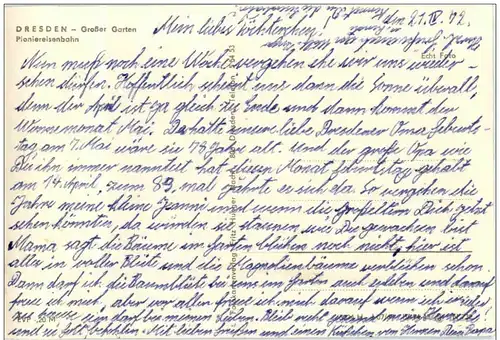 DRESDEN – Großer Garten
Pioniereisenbahn
Echt Foto
Mein liebes Töchterchen! den 21.IV.72.
Nun muß noch eine Woche vergehen ehe wir uns wieder-
sehen dürfen. Hoffentlich scheint uns dann die Sonne überall,
denn der April ist ja gleich zu Ende und dann kommt der
Wonnemonat Mai. Da hätte unsere liebe Dresdener Oma Geburts-
tag am 7. Mai wäre sie 78 Jahre alt. Und der große Opa wie
Du ihn immer nanntest hat diesen Monat Geburtstag gehabt
am 14. April, zum 83. mal jährte es sich da. So vergehen die
Jahre meine kleine Jeannj und wenn die Großeltern Dich jetzt
sehen könnten, da würden sie staunen wie Du gewachsen bist
Mama sagt die Bäume im Garten blühen noch nicht, hier ist
alles in vollen Blüte und die Magnolienbäume verblühen schon.
Dann darf ich die Baumblüte bei uns im Garten auch erleben und darauf
freue ich mich, aber vor allen freue ich mich darauf wenn ich
bei meinen lieben
und sei Gott befohlen. Mit lieben Grüßen und einem Küßchen von Deinem Papa